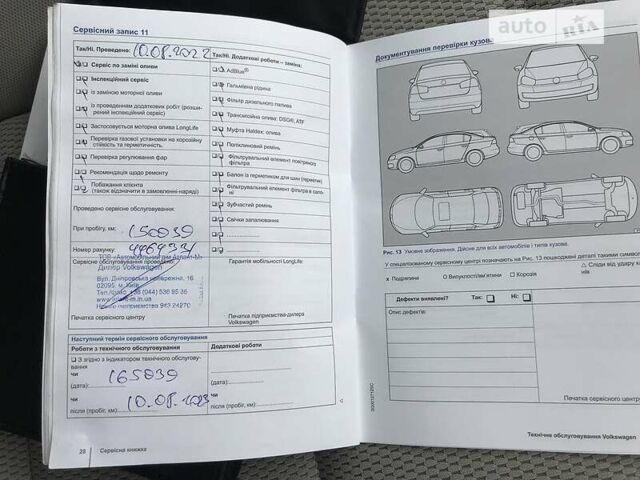 auto RIA
Сервісний запис 11
Так/Ні. Проведено: 10.08.2022
Так/Ні. Додаткові роботи – заміна:
Сервіс по заміні оливи
Інспекційний сервіс
із заміною моторної оливи
із проведенням додаткових робіт (розширений інспекційний сервіс)
Застосовується моторна олива LongLife
Перевірка газової установки на корозійну стійкість та герметичність.
Перевірка регулювання фар
Рекомендація щодо ремонту
Побажання клієнта
(також відзначити в замовленні-наряді)
AdBlue®
Гальмівна рідина
Фільтр дизельного палива
Трансмісійна олива: DSG®, ATF
Муфта Haldex: олива
Поліклиновий ремінь
Фільтрувальний елемент повітряного фільтра
Балон із герметиком для шин (герметик)
Фільтрувальний елемент фільтра в салоні
Зубчастий ремінь
Свічки запалювання
Проведено сервісне обслуговування:
При пробігу, км: 150039
Номер рахунку:
Сервісне обслуговування проведено:
ТОВ «Автомобільний дім Атлант-М»
Дилер Volkswagen
02095, м. Київ
Печатка сервісного центру
Гарантія мобільності LongLife:
Печатка підприємства-дилера
Volkswagen
Наступний термін сервісного обслуговування
Роботи з технічного обслуговування
Додаткові роботи
З згідно з індикатором технічного обслуговування
чи
(дата): 165039
чи
після (пробіг, км): 10.08.2023
(дата):
чи
після (пробіг, км):
28 Сервісна книжка
Документування перевірки кузова.
Рис. 13 Умовне зображення. Дійсне для всіх автомобілів і типів кузова.
У спеціалізованому сервісному центрі позначають на Рис. 13 пошкоджені деталі такими символами
x Подряпини
○ Випуклості/вм'ятини
□ Корозія
△ Сліди від удару
Дефекти виявлені?
Так:
Ні:
Опис дефектів:
Печатка сервісного центру
Технічне обслуговування Volkswagen